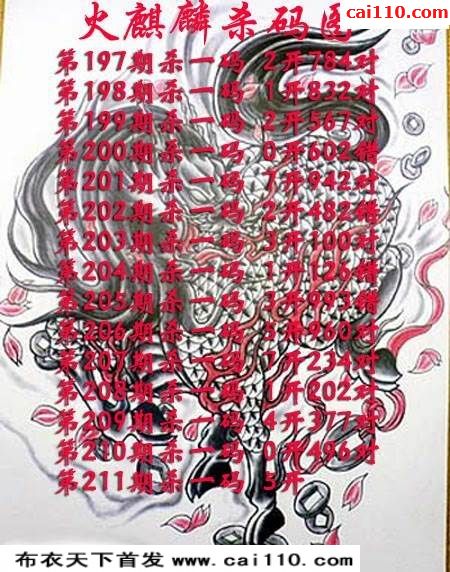 cai110.com
火麒麟杀码区
第197期杀一码 2开784对
第198期杀一码 1开832对
第199期杀一码 2开567对
第200期杀一码 0开602错
第201期杀一码 7开942对
第202期杀一码 2开482错
第203期杀一码 3开100对
第204期杀一码 1开126错
第205期杀一码 3开993错
第206期杀一码 5开960对
第207期杀一码 7开234对
第208期杀一码 1开202对
第209期杀一码 4开377对
第210期杀一码 0开496对
第211期杀一码 5开
布衣天下首发 www.cai110.com